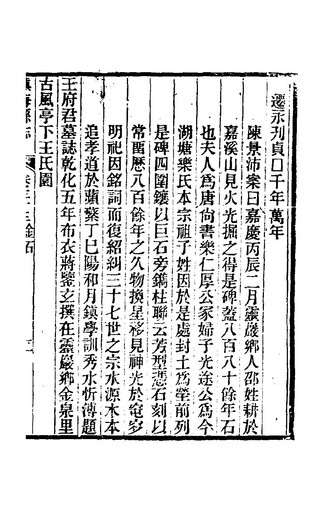 遷示刋貞□千年萬年
陳景沛案曰嘉慶丙辰二月靈巖鄉人邵姓耕於
嘉溪山見火光掘之得是碑蓋八百八十餘年石
也夫人爲唐尙書樂仁厚公冢婦子光途公爲今
湖塘樂氏本宗祖子姓因於是處封土爲塋前列
是碑四圍鑲以巨石旁鐫柱聯云芳型慿石刻以
常留歷八百餘年之久物換星移見神光於窀穸
明祀因銘詞而復紹糾三十七世之宗水源木本
追孝道於蘋蘩丁巳陽和月鎮學訓秀水忻溥題
王府君墓誌乾化五年布衣蔣鑒玄撰在靈巖鄉金泉里
古風亭下王氏園
鎮海縣志 卷三十三金石 二